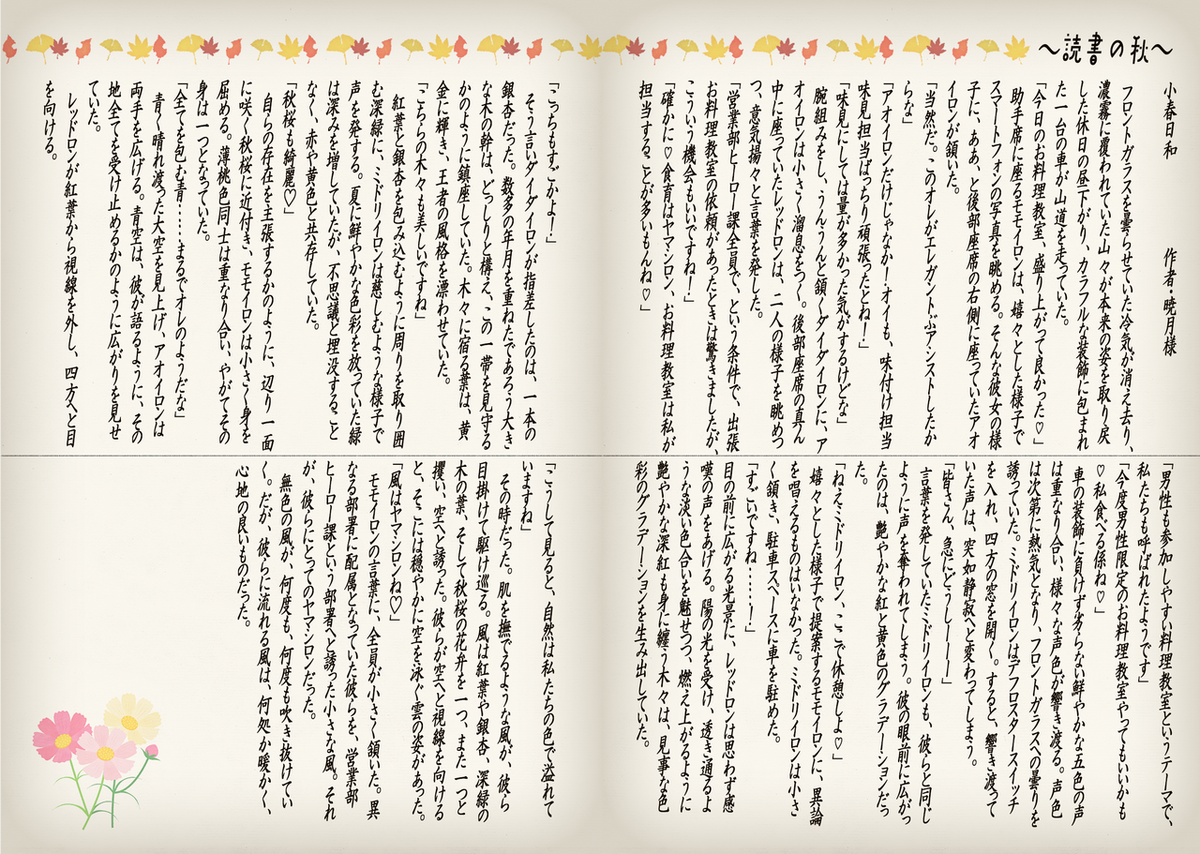 ～読書の秋～
小春日和　　　作者・暁月様
フロントガラスを曇らせていた冷気が消え去り、
濃霧に覆われていた山々が本来の姿を取り戻
した休日の昼下がり、カラフルな装飾に包まれ
た一台の車が山道を走っていた。
「今日のお料理教室、盛り上がって良かった♡」
助手席に座るモモイロンは、嬉々とした様子で
スマートフォンの写真を眺める。そんな彼女の様
子に、ああ、と後部座席の右側に座っていたアオ
イロンが頷いた。
「当然だ。このオレがエレガントにアシストしたか
らな」
「アオイロンだけじゃなか！オイも、味付け担当
味見担当ばっちり頑張ったとね！」
「味見にしては量が多かった気がするけどな」
腕組みをし、うんうんと頷くダイダイロンに、ア
オイロンは小さく溜息をつく。後部座席の真ん
中に座っていたレッドロンは、二人の様子を眺めつ
つ、意気揚々と言葉を発した。
「営業部ヒーロー課全員で、という条件で、出張
お料理教室の依頼があったときは驚きましたが、
こういう機会もいいですね！」
「確かに♡食育はヤマシロン、お料理教室は私が
担当することが多いもんね♡」
「男性も参加しやすい料理教室というテーマで、
私たちも呼ばれたようです」
「今度男性限定のお料理教室やってもいいかも
♡私食べる係ね♡」
車の装飾に負けず劣らない鮮やかな五色の声
は重なり合い、様々な声色が響き渡る。声色
は次第に熱気となり、フロントガラスへの曇りを
誘っていた。ミドリイロンはデフロスタースイッチ
を入れ、四方の窓を開く。すると、響き渡って
いた声は、突如静寂へと変わってしまう。
「皆さん、急にどうしーーー」
言葉を発していたミドリイロンも、彼らと同じ
ように声を奪われてしまう。彼の眼前に広がっ
たのは、艶やかな紅と黄色のグラデーションだっ
た。
「ねえミドリイロン、ここで休憩しよ♡」
嬉々とした様子で提案するモモイロンに、異論
を唱えるものはいなかった。ミドリイロンは小さ
く頷き、駐車スペースに車を駐めた。
「すごいですね……！」
目の前に広がる光景に、レッドロンは思わず感
嘆の声をあげる。陽の光を受け、透き通るよ
うな淡い色合いを魅せつつ、燃え上がるように
艶やかな深紅も身に纏う木々は、見事な色
彩のグラデーションを生み出していた。
「こっちもすごかよー！」
そう言いダイダイロンが指差したのは、一本の
銀杏だった。数多の年月を重ねたであろう大き
な木の幹は、どっしりと構え、この一帯を見守る
かのように鎮座していた。木々に宿る葉は、黄
金に輝き、王者の風格を漂わせていた。
「こちらの木々も美しいですね」
紅葉と銀杏を包み込むように周りを取り囲
む深緑に、ミドリイロンは慈しむような様子で
声を発する。夏に鮮やかな色彩を放っていた緑
は深みを増していたが、不思議と埋没すること
なく、赤や黄色と共存していた。
「秋桜も綺麗♡」
自らの存在を主張するかのように、辺り一面
に咲く秋桜に近付き、モモイロンは小さく身を
屈める。薄桃色同士は重なり合い、やがてその
身は一つとなっていた。
「全てを包む青……まるでオレのようだな」
青く晴れ渡った大空を見上げ、アオイロンは
両手を広げる。青空は、彼が語るように、その
地全てを受け止めるかのように広がりを見せ
ていた。
レッドロンが紅葉から視線を外し、四方へと目
を向ける。
「こうして見ると、自然は私たちの色で溢れて
いますね」
その時だった。肌を撫でるような風が、彼ら
目掛けて駆け巡る。風は紅葉や銀杏、深緑の
木の葉、そして秋桜の花弁を一つ、また一つと
攫い、空へと誘った。彼らが空へと視線を向ける
と、そこには穏やかに空を泳ぐ雲の姿があった。
「風はヤマシロンね♡」
モモイロンの言葉に、全員が小さく頷いた。異
なる部署に配属となっていた彼らを、営業部
ヒーロー課という部署へと誘った小さな風。それ
が、彼らにとってのヤマシロンだった。
無色の風が、何度も、何度も吹き抜けてい
く。だが、彼らに流れる風は、何処か暖かく、
心地の良いものだった。